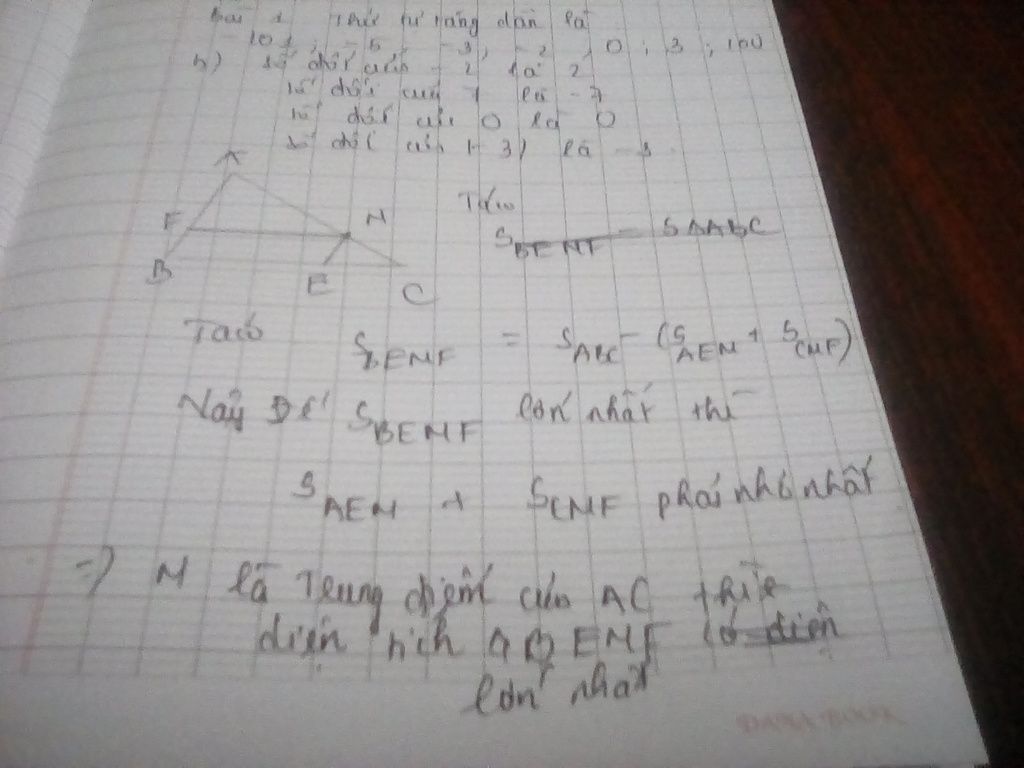 Bài 1 Thứ tự tăng dần là
-101, -5, -3, -2, 0, 3, 100
b) số đối của -2 là 2
số đối của 7 là -7
số đối của 0 là 0
số đối của |-3| là -3
A
F M Ta có
S BEMF = S ΔABC
B E C
Ta có S BEMF = S ABC - (S AEM + S CMF)
Vậy Để S BEMF lớn nhất thì
S AEM + S CMF phải nhỏ nhất
=> M là Trung điểm của AC thì
diện tích BEMF có diện
lớn nhất